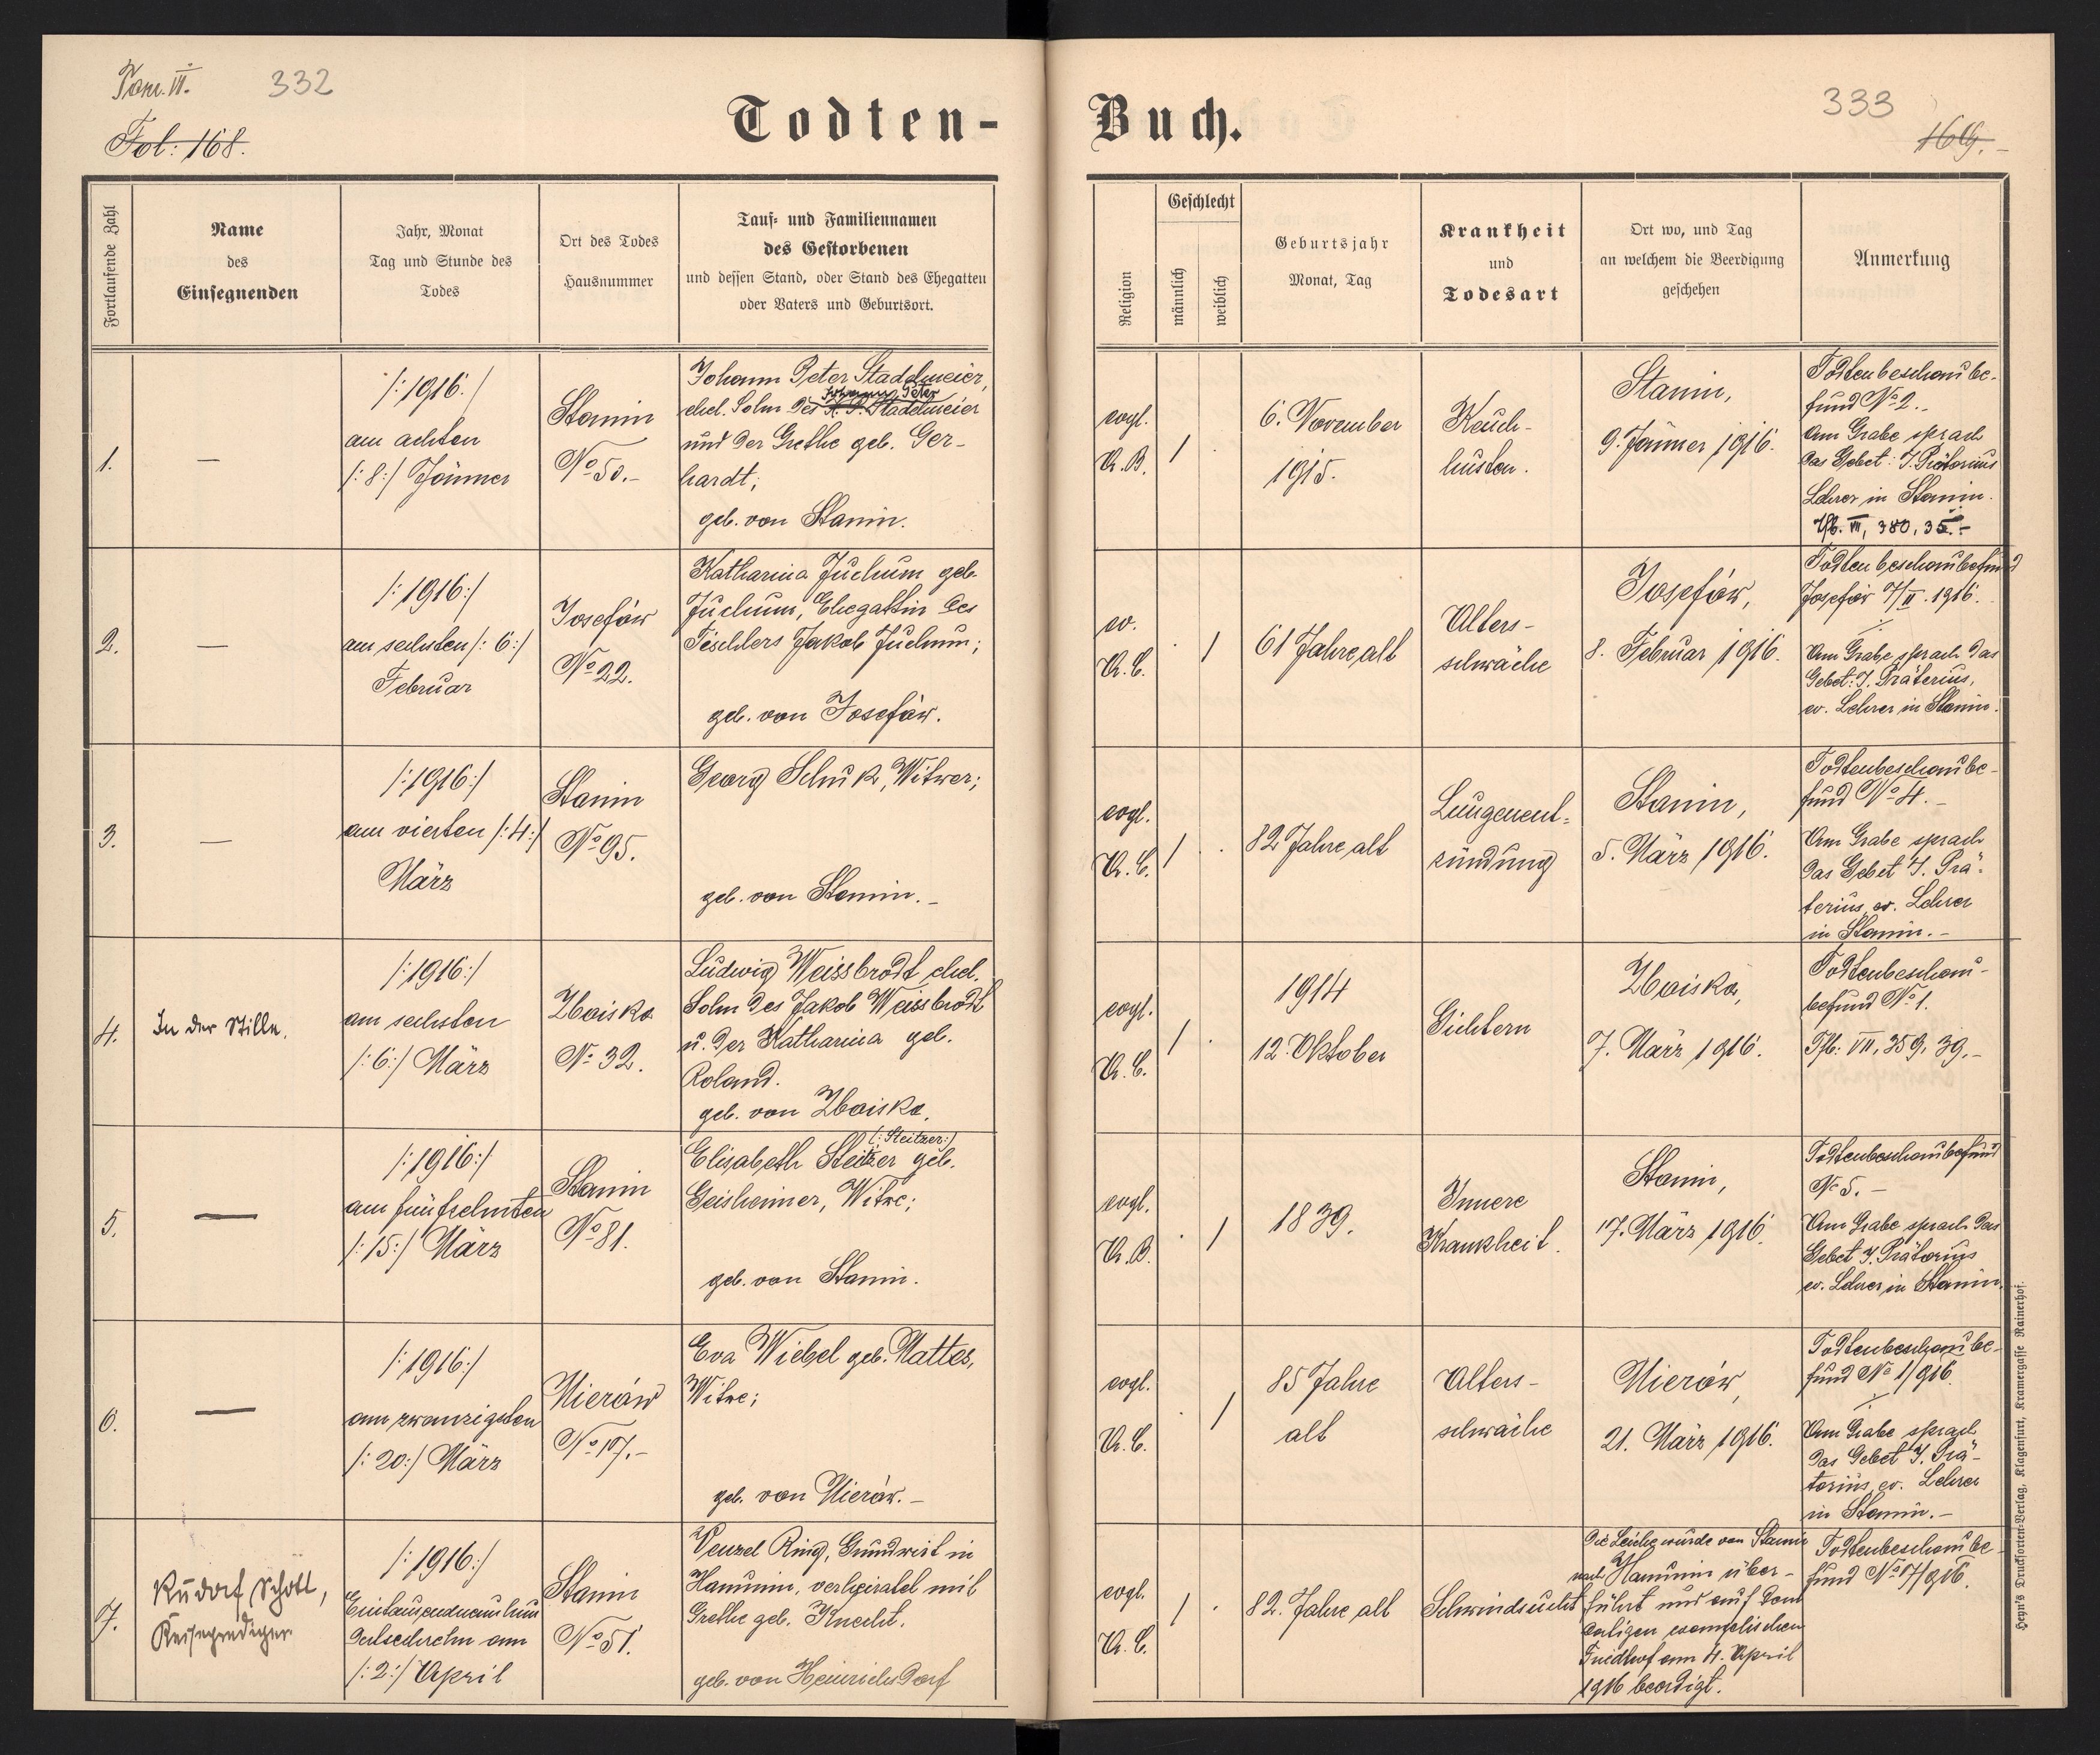 Tom. VI.
332
Fol: 168.
Todten-
Buch.
333
169.-
Fortlaufende Zahl
Name
des
Einsegnenden
Jahr, Monat
Tag und Stunde des
Todes
Ort des Todes
Hausnummer
Tauf- und Familiennamen
des Gestorbenen
und dessen Stand, oder Stand des Ehegatten
oder Vaters und Geburtsort.
Religion
Geschlecht
männlich
weiblich
Geburtsjahr
Monat, Tag
Krankheit
und
Todesart
Ort wo, und Tag
an welchem die Beerdigung
geschehen
Anmerkung
1.
—
/:1916:/
am achten
/:8:/ Jänner
Stanin
No 50.-
Johann Peter Stadelmeier,
Johann Peter
ehel. Sohn des A. P. Stadelmeier
und der Grethe geb. Ger-
hardt;
geb. von Stanin.
evgl.
A.B.
/
.
6. November
1915.
Keuch-
husten.
Stanin,
9. Jänner 1916.
Todtenbeschaube-
fund No 2.-
Am Grabe sprach
das Gebet: J. Prätorius
Lehrer in Stanin.
Tfb. VII, 380, 35.-
2.
—
/:1916:/
am sechsten /:6:/
Februar
Josefów
No 22.
Katharina Juchum geb.
Juchum, Ehegattin des
Tischlers Jakob Juchum;
geb. von Josefów.
ev.
A.C.
.
/
61 Jahre alt
Alters-
schwäche
Josefów,
8. Februar 1916.
Todtenbeschaubefund
Josefów 7/II. 1916.
Am Grabe sprach das
Gebet: J. Präterius,
ev. Lehrer in Stanin.
3.
—
/:1916:/
am vierten /:4:/
März
Stanin
No 95.
Georg Schuk, Witwer;
geb. von Stanin.-
evgl.
A.C.
/
.
82 Jahre alt
Lungenent-
zündung
Stanin,
5. März 1916.
Todtenbeschaube-
fund No 4.-
Am Grabe sprach
das Gebet J. Prä-
terius, ev. Lehrer
in Stanin.-
4.
In der Stille.
/:1916:/
am sechsten
/:6:/ März
Zboiska
No 32.
Ludwig Weissbrodt, ehel.
Sohn des Jakob Weissbrodt
u. der Katharina geb.
Roland.
geb. von Zboiska.
evgl.
A.C.
/
.
1914
12. Oktober
Gichtern
Zboiska,
7. März 1916.
Todtenbeschau-
befund No 1.
Tfb: VII, 359, 39.-
5.
—
/:1916:/
am fünfzehnten
/:15:/ März
Stanin
No 81.
(:Steitzer:)
Elisabeth Steitzer geb.
Geisheimer, Witwe;
geb. von Stanin.
evgl.
A.B.
.
/
1839.
Innere
Krankheit.
Stanin,
17. März 1916.
Todtenbeschaubefund
No 5.-
Am Grabe sprach das
Gebet J. Prätorius
ev. Lehrer in Stanin.
6.
—
/:1916:/
am zwanzigsten
/:20:/ März
Uierów
No 17.-
Eva Wiebel geb. Mattes,
Witwe;
geb. von Uierów.-
evgl.
A.C.
.
/
85 Jahre
alt
Alters-
schwäche
Uierów,
21. März 1916.
Todtenbeschaube-
fund No 1/916.
Am Grabe sprach
das Gebet J. Prä-
torius, ev. Lehrer
in Stanin.-
7.
Rudolf Schott,
Reiseprediger
/:1916:/
Eintausendneunhun
dertsechzehn am
/:2:/ April
Stanin
No 51.
Wenzel Ring, Grundwirt in
Hanunin, verheiratet mit
Grethe geb. Knecht.
geb. von Heinrichsdorf
evgl.
A.C.
/
.
82. Jahre alt
Schwindsucht
Die Leiche wurde von Stanin
nach Hanunin über-
führt und auf dem
dortigen evangelischen
Friedhof am 4. April
1916 beerdigt.
Todtenbeschaube-
fund No 7/916.
Heyn's Drucksorten-Verlag, Klagenfurt, Kramergasse Rainerhof.